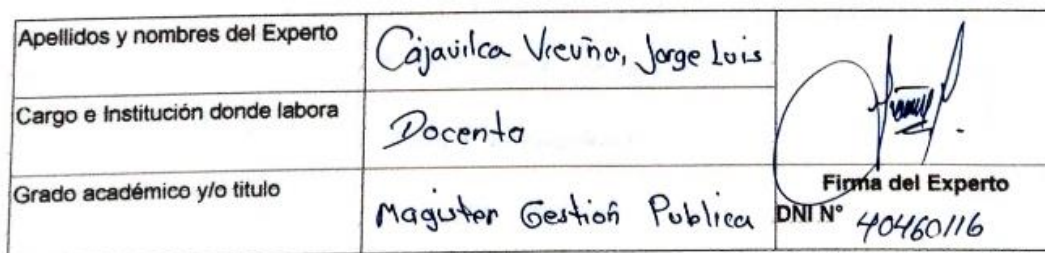 Apellidos y nombres del Experto
Cájavilca Vicuña, Jorge Luis
Cargo e Institución donde labora
Docente
Grado académico y/o titulo
Magister Gestión Publica
Firma del Experto
DNI N° 40460116